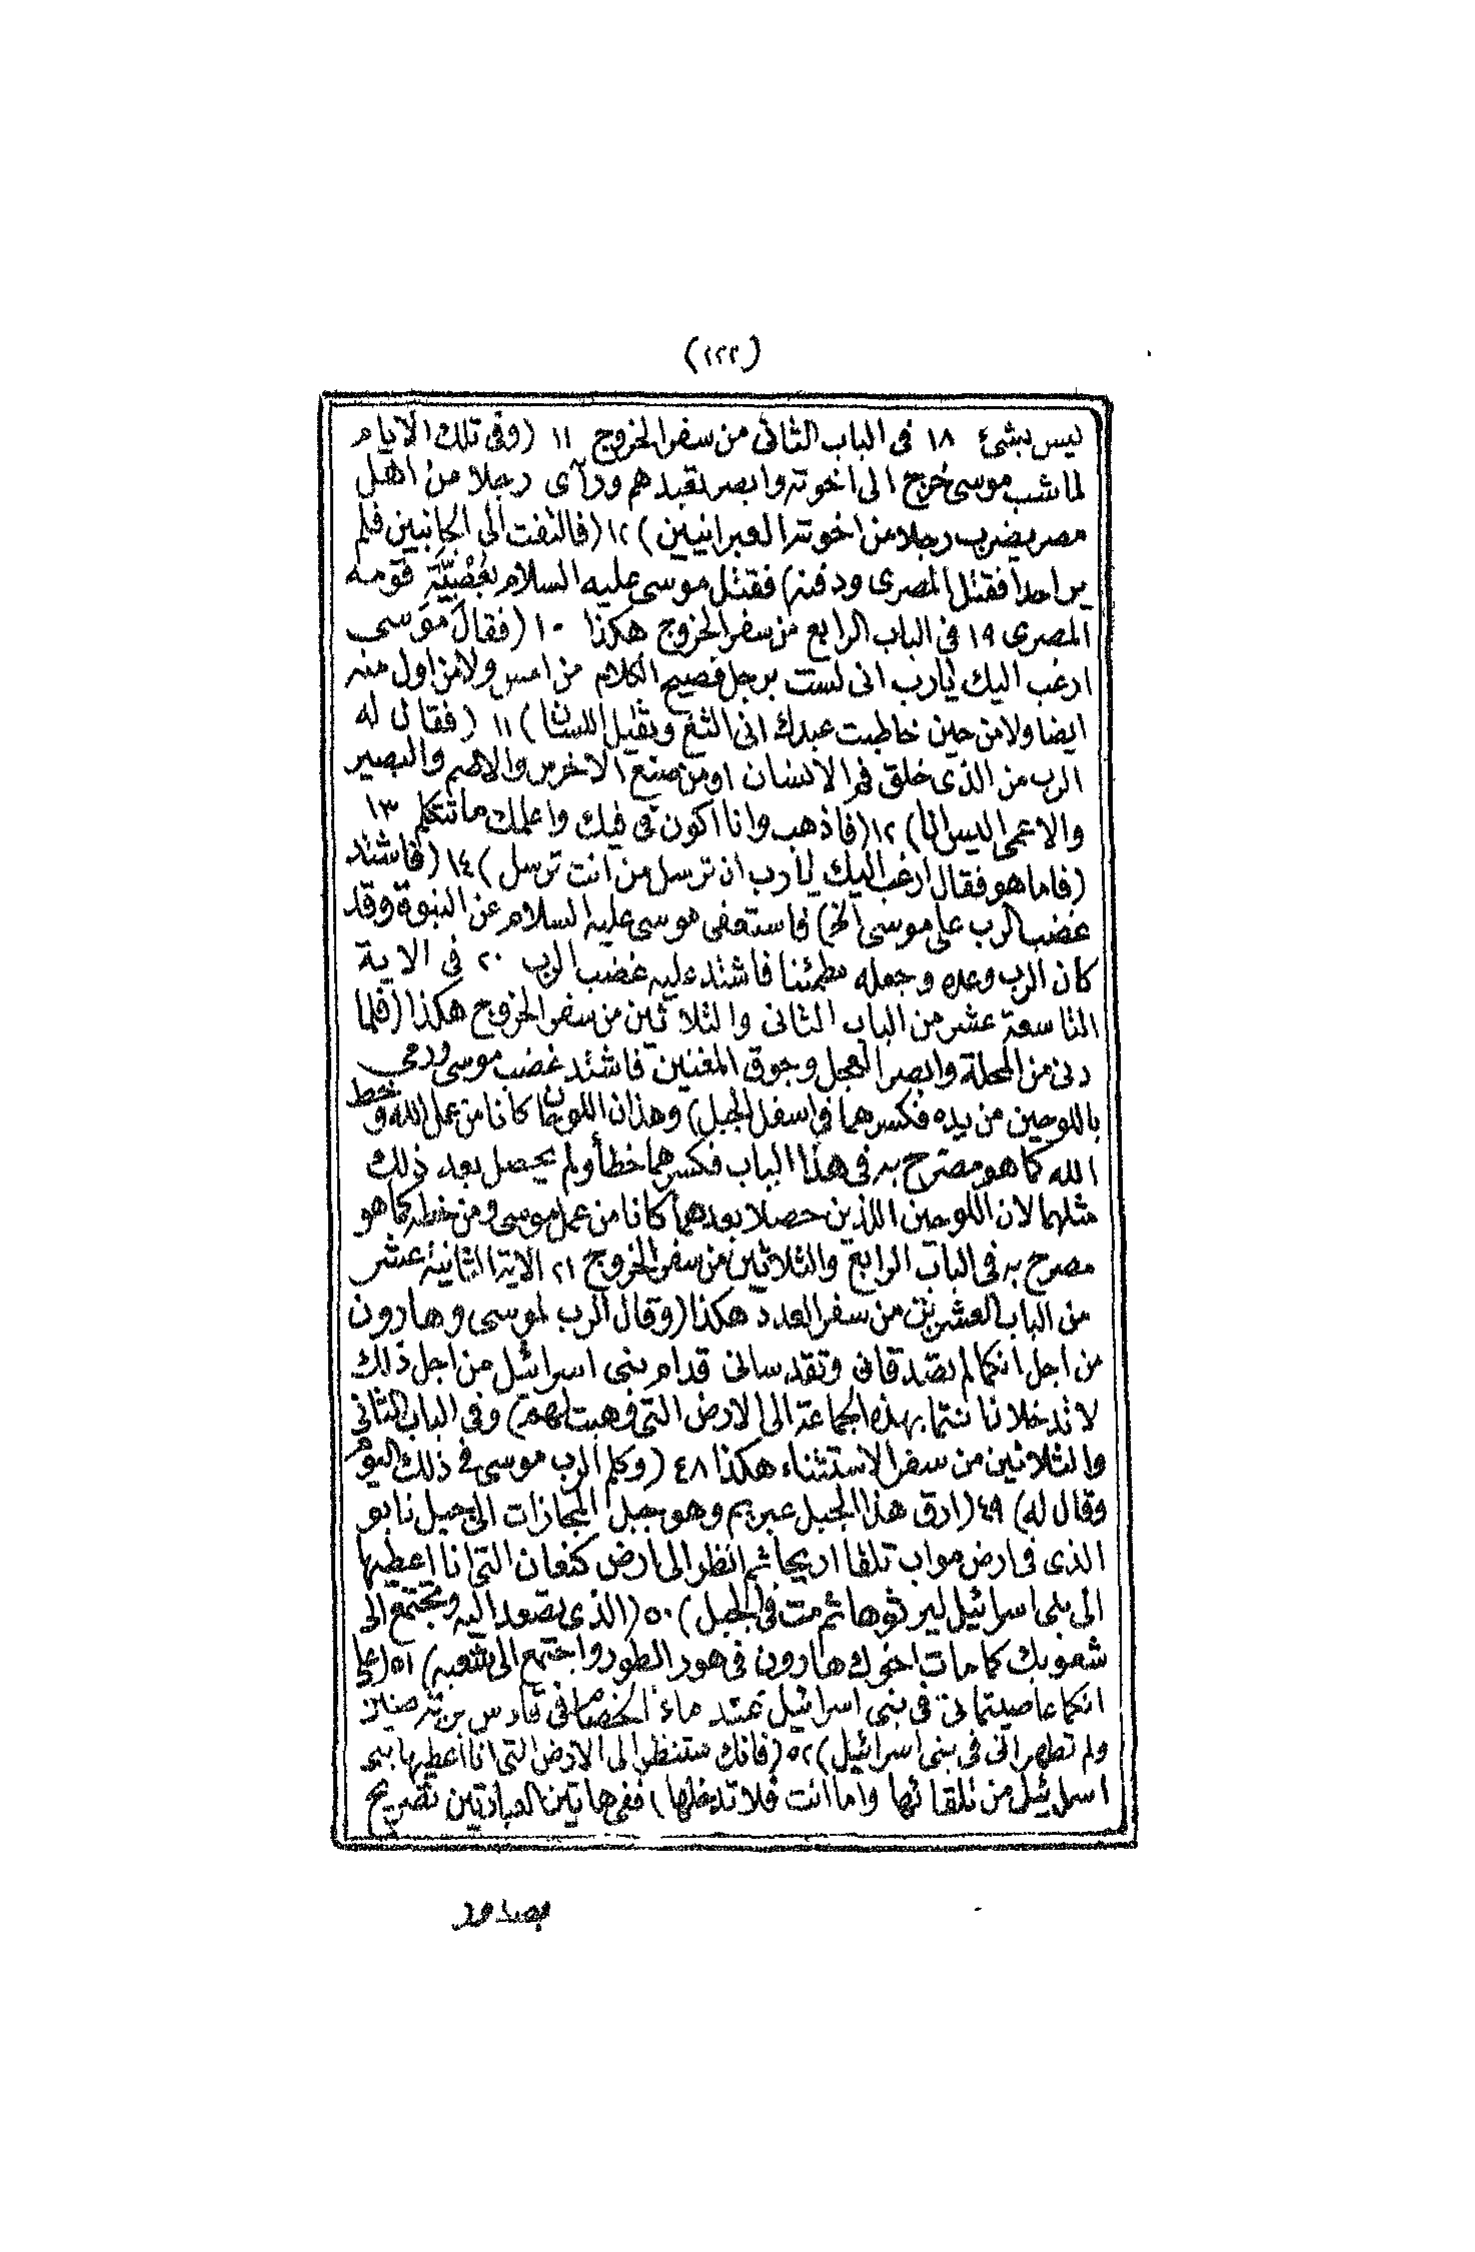 (١٢٢)
ليس بشئ ١٨ في الباب الثاني من سفر الخروج ١١ (وفي تلك الايام
لما شب موسى خرج الى اخوته وابصر تعبدهم ورآى رجلا من اهل
مصر يضرب رجلا من اخوته العبرانيين) ١٢ (فالتفت الى الجانبين فلم
ير احدا فقتل المصرى ودفنه) فقتل موسى عليه السلام بعصبية قومه
المصرى ١٩ في الباب الرابع من سفر الخروج هكذا ١٠ (فقال موسى
ارغب اليك يارب انى لست برجل فصيح الكلام من امس ولا من اول منه
ايضا ولا من حين خاطبت عبدك انى الثغ وثقيل اللسان) ١١ (فقال له
الرب من الذى خلق فم الانسان او من صنع الاخرس والاصم والبصير
والاعمى اليس انا) ١٢ (فاذهب وانا اكون في فيك واعلمك ما تتكلم ١٣
(فاما هو فقال ارغب اليك يارب ان ترسل من انت ترسل) ١٤ (فاشتد
غضب الرب على موسى الخ) فاستعفى موسى عليه السلام عن النبوة وقد
كان الرب وعده وجعله مطمئنا فاشتد عليه غضب الرب ٢٠ في الاية
التاسعة عشر من الباب الثانى والثلاثين من سفر الخروج هكذا (فلما
دنى من المحلة وابصر العجل وجوق المغنين فاشتد غضب موسى ورمى
باللوحين من يده فكسرهما في اسفل الجبل) وهذان اللوحان كانا من عمل الله و بخط
الله كما هو مصرح به في هذا الباب فكسرهما خطأ ولم يحصل بعد ذلك
مثلهما لان اللوحين اللذين حصلا بعدهما كانا من عمل موسى ومن خطه كما هو
مصرح به في الباب الرابع والثلاثين من سفر الخروج ٢١ الاية الثانية عشر
من الباب العشرين من سفر العدد هكذا (وقال الرب لموسى وهارون
من اجل انكما لم تصدقانى وتقدسانى قدام بنى اسرائيل من اجل ذلك
لا تدخلان انتما بهذه الجماعة الى الارض التى وهبت لهم) وفى الباب الثانى
والثلاثين من سفر الاستثناء هكذا ٤٨ (وكلم الرب موسى في ذلك اليوم
وقال له) ٤٩ (ارق هذا الجبل عبريم وهو جبل المجازات الى جبل نابو
الذى في ارض مواب تلقا اريحا ثم انظر الى ارض كنعان التى انا اعطيها
الى بنى اسرائيل ليرثوها ثم مت في الجبل) ٥٠ (الذى تصعد اليه وتجتمع الى
شعوبك كما مات اخوك هارون في هور الطور واجتمع الى شعبه) ٥١ (على
انكما عاصيتمانى في بنى اسرائيل عند ماء الخصام في قادس برية صين
ولم تطهرانى في بنى اسرائيل) ٥٢ (فانك ستنظر الى الارض التى انا اعطيها بنى
اسرائيل من تلقائها واما انت فلا تدخلها) ففى هاتين العبارتين تصريح
بصدور